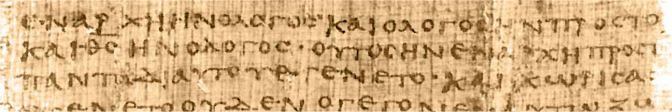 ΕΝΑΡΧΗΗΝΟΛΟΓΟΣ ΚΑΙΟΛΟΓΟΣΗΝΠΡΟΣΤΟ
ΚΑΙΘΣΗΝΟΛΟΓΟΣ · ΟΥΤΟΣΗΝΕΝΑΡΧΗΠΡΟΣΤ
ΠΑΝΤΑΔΙΑΥΤΟΥΕΓΕΝΕΤΟ · ΚΑΙΧΩΡΙΣΑ
ΕΝΕΤΟΟΥΔΕΝΟΓΕΓΟΝΕ